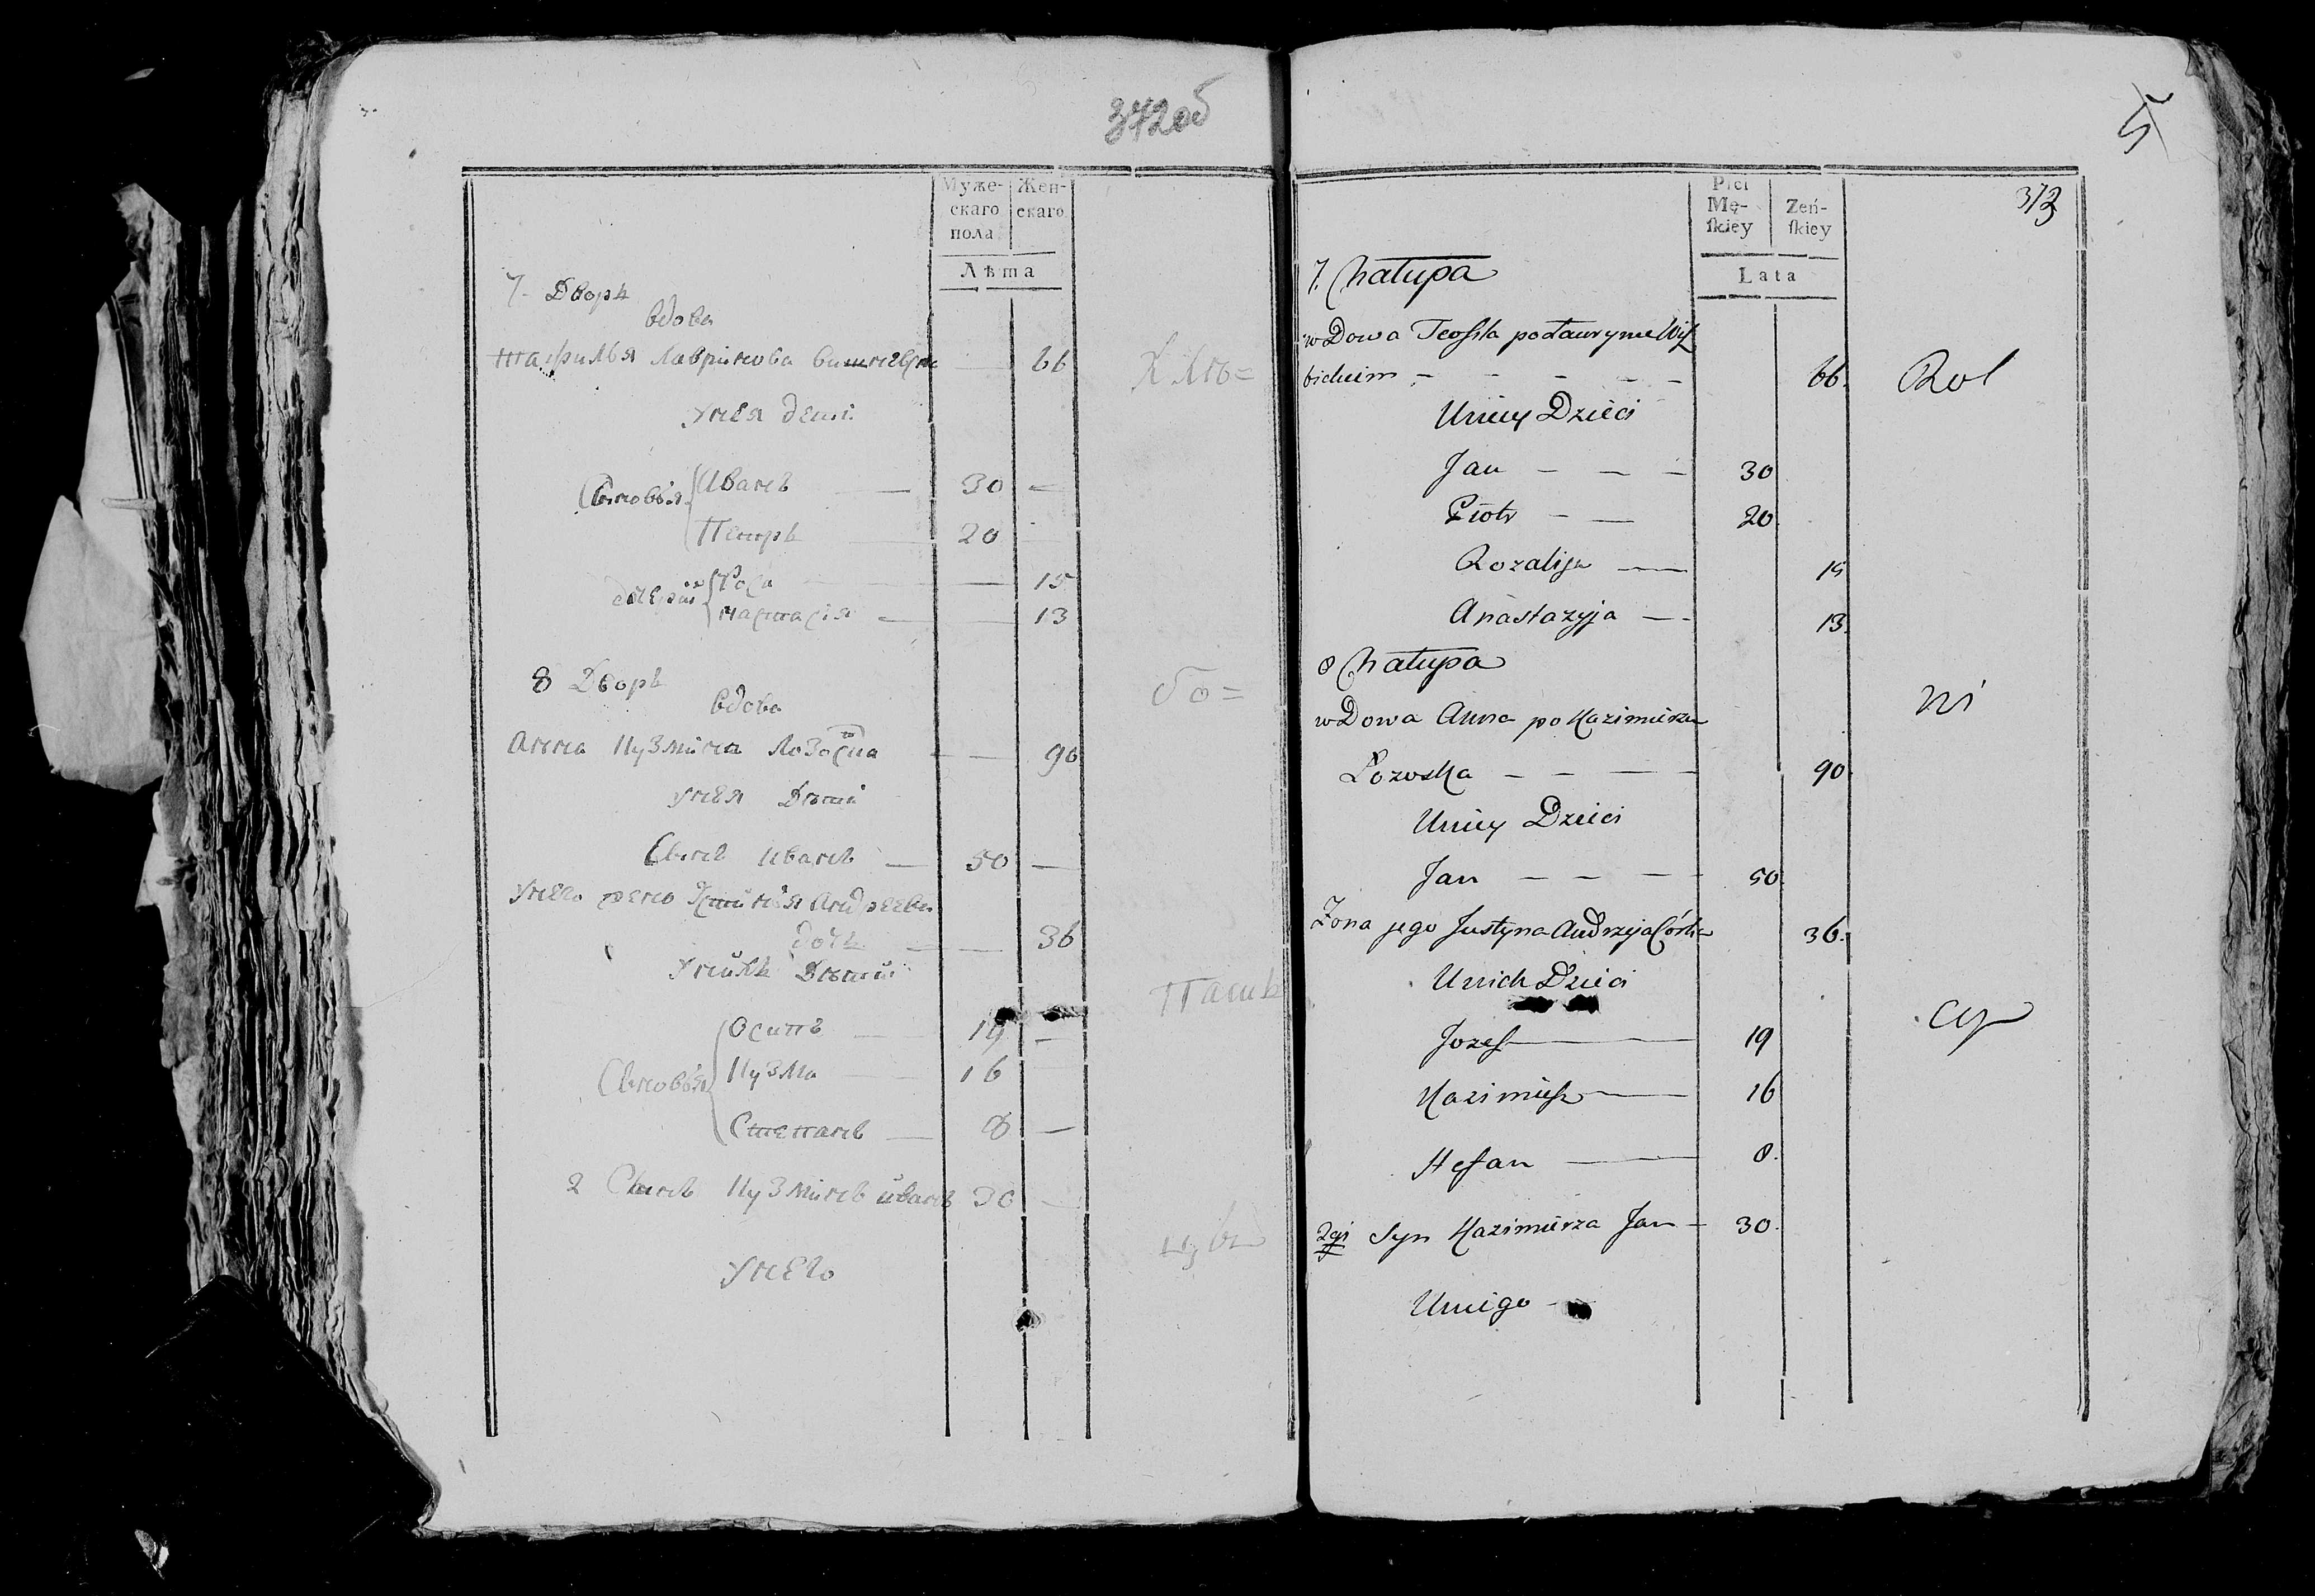 372об
Муже-
скаго
пола
Жен-
скаго
Лѣта
7. Дворъ
вдова
Лаврикова 66
Хлѣ=
У нея дети
Сыновья Иванъ — 30 —
Петръ — 20 —
дочери Роза — 15
Настасія — 13
8 Дворъ
вдова
бо=
Анна Кузмина Лозоска — 90
У нея Дѣти
Сынъ Иванъ — 50 —
У него жена Устинья Андреева
дочь — 36
У нихъ Дѣти
Паш
Осипъ — 19 —
Сыновья Кузма — 16
Степанъ — 8 —
2 Сынъ Кузминъ Иванъ 30 —
цы
У него
5
373
Płci
Mę-
ſkiey
Żeń-
ſkiey
Lata
7. Chałupa
wDowa Teofila po Ławrynie Wiſz
bickim — — — — — 66.
Rol
U niey Dzieci
Jan — — — 30
Piotr — — 20
Rozalija — 15
Anastazyja — 13.
8 Chałupa
ni
wDowa Anna po Kazimierzu
Łozoska — — — 90.
U niey Dzieci
Jan — — — 50.
Żona jego Justyna Andrzeja Córka 36.
U nich Dzieci
cy
Jozef — 19
Kazimierz — 16
Stefan — 8.
2gi Syn Kazimierza Jan — 30.
U niego —